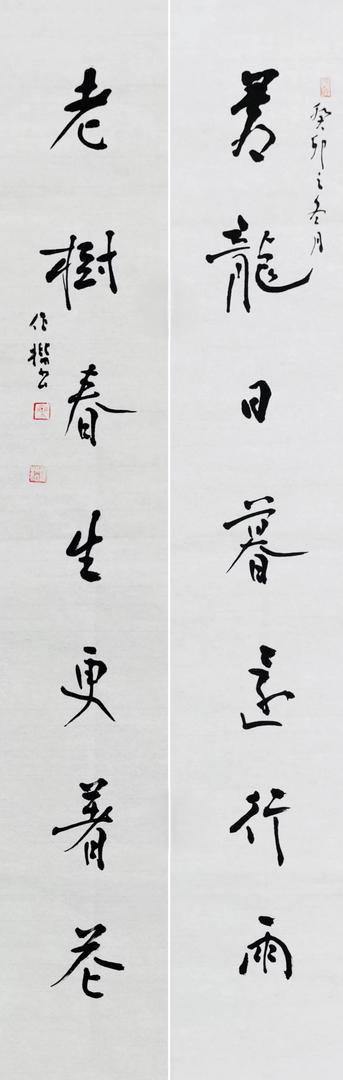 癸卯之冬月
蒼龍日暮還行雨
老樹春生更著花
作书